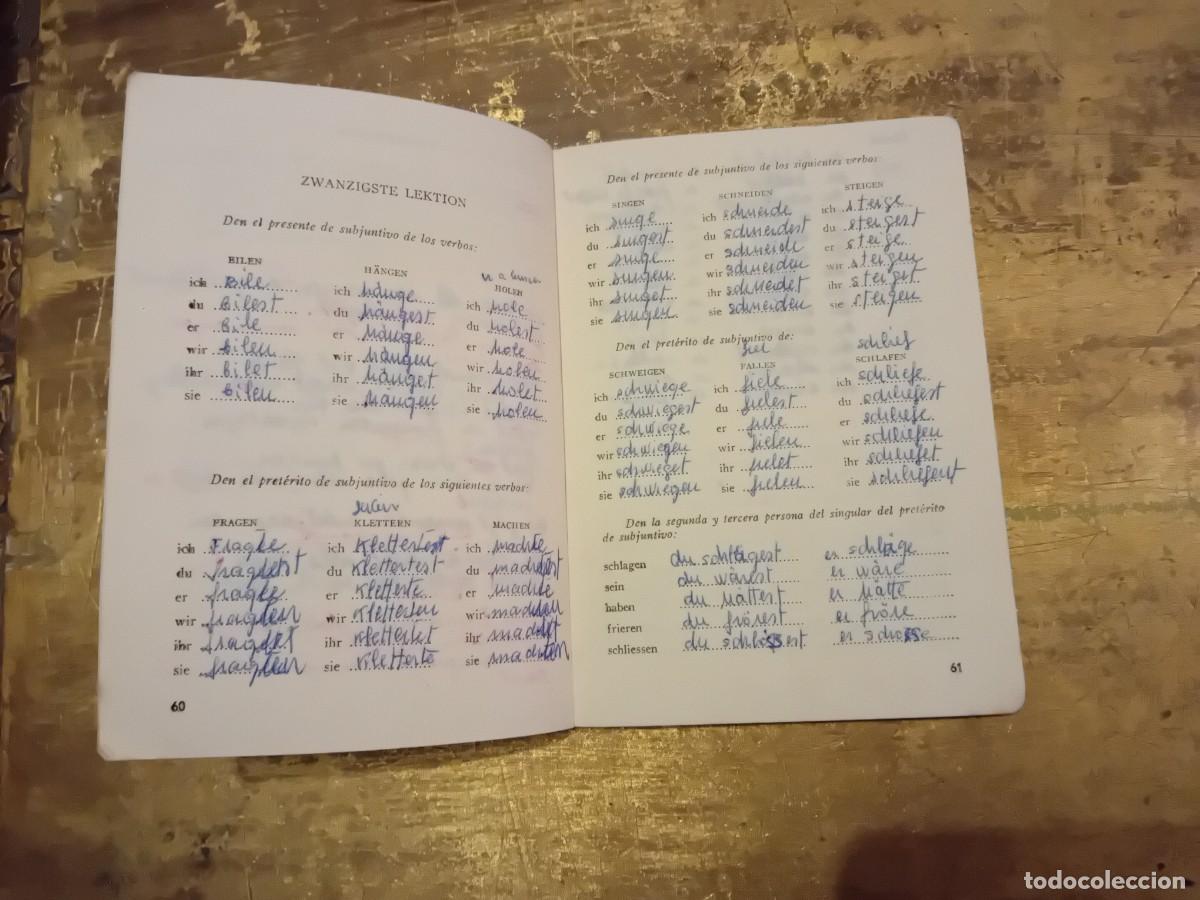 ZWANZIGSTE LEKTION
Den el presente de subjuntivo de los verbos:
EILEN HÄNGEN HOLEN
ich eile ich hänge ich hole
du eilest du hängest du holest
er eile er hänge er hole
wir eilen wir hängen wir holen
ihr eilet ihr hänget ihr holet
sie eilen sie hangen sie holen
Den el pretérito de subjuntivo de los siguientes verbos:
FRAGEN KLETTERN MACHEN
ich Fragte ich Klettertest ich machte
du du Klettertest du machtest
er fragte er Kletterte er machte
wir fragten wir Kletterten wir machten
ihr fragtet ihr Klettertet ihr machtet
sie fragten sie Kletterte sie machten
60
Den el presente de subjuntivo de los siguientes verbos:
SINGEN SCHNEIDEN STEIGEN
ich singe ich schneide ich steige
du singest du schneidest du steigest
er singe er schneide er steige
wir singen wir schneiden wir steigen
ihr singet ihr schneidet ihr steiget
sie singen sie schneiden sie steigen
Den el pretérito de subjuntivo de:
fiel schlief
SCHWEIGEN FALLEN SCHLAFEN
ich schwiege ich fiele ich schliefe
du schwiegest du fielest du schliefest
er schwiege er fiele er schliefe
wir schwiegen wir fielen wir schliefen
ihr schwieget ihr fielet ihr schliefet
sie schwiegen sie fielen sie schliefent
Den la segunda y tercera persona del singular del pretérito
de subjuntivo:
schlagen du schlägest er schläge
sein du wärest er wäre
haben du hättest er hätte
frieren du frörest er fröre
schliessen du er
61
todocoleccion